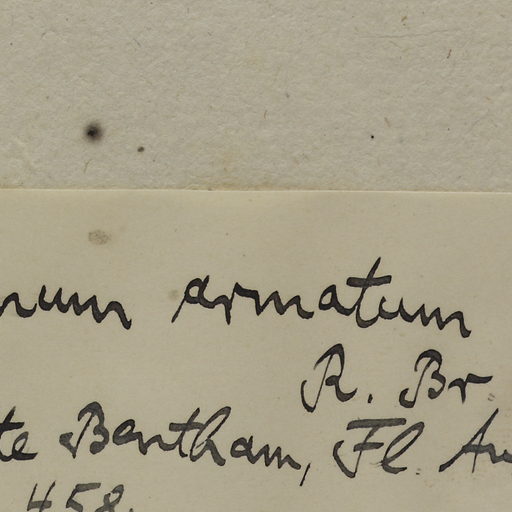 num armatum
R. Br
te Bentham, Fl. Au
458.